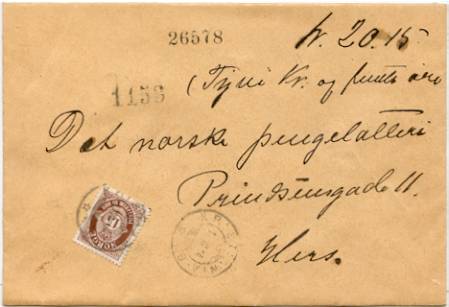 26578
Kr. 20.15
1153
(Tyve Kr. og femten øre)
Det norske pengelotteri
Prindsensgade 11.
Hers.